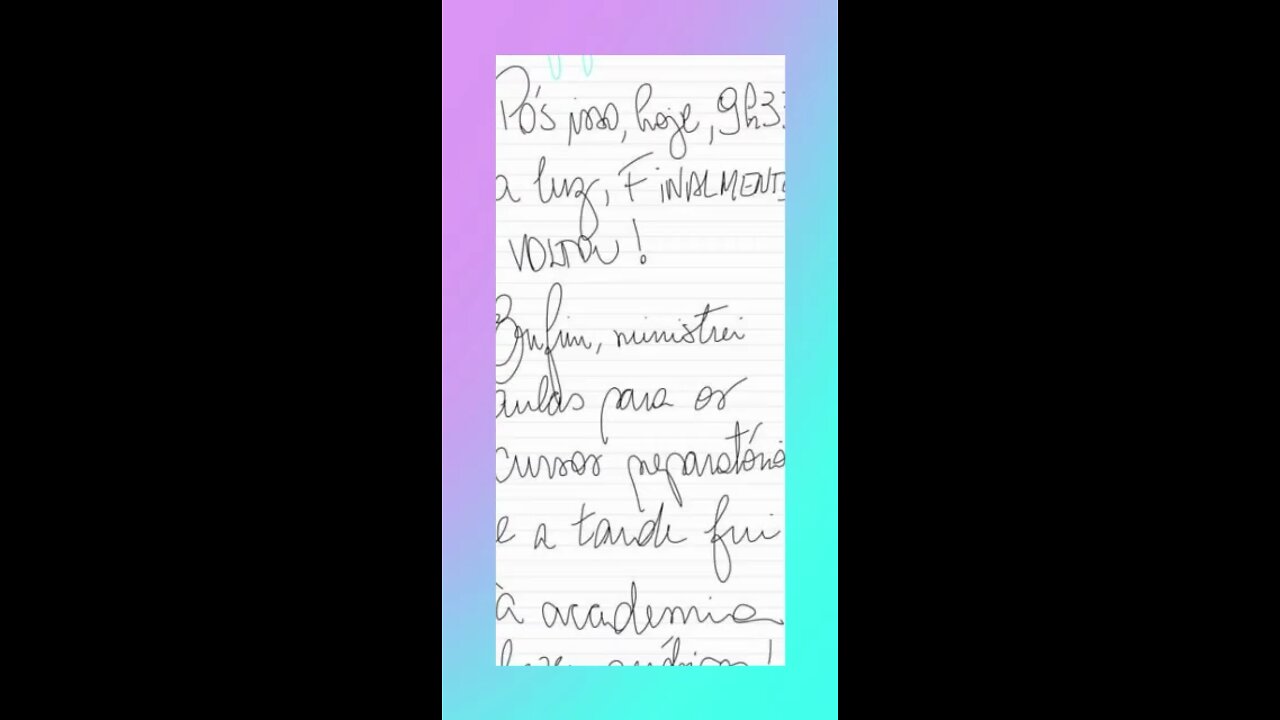 Pós isso, hoje, 9h33
a luz, FiNALMENTE
VOLTOU!
Enfim, ministrei
aulas para os
cursos preparatório
e a tarde fui
à academia